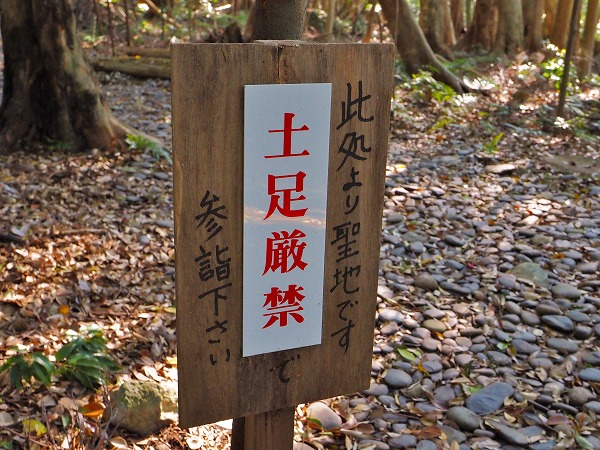 此処より聖地です
土足厳禁
で
参詣下さい